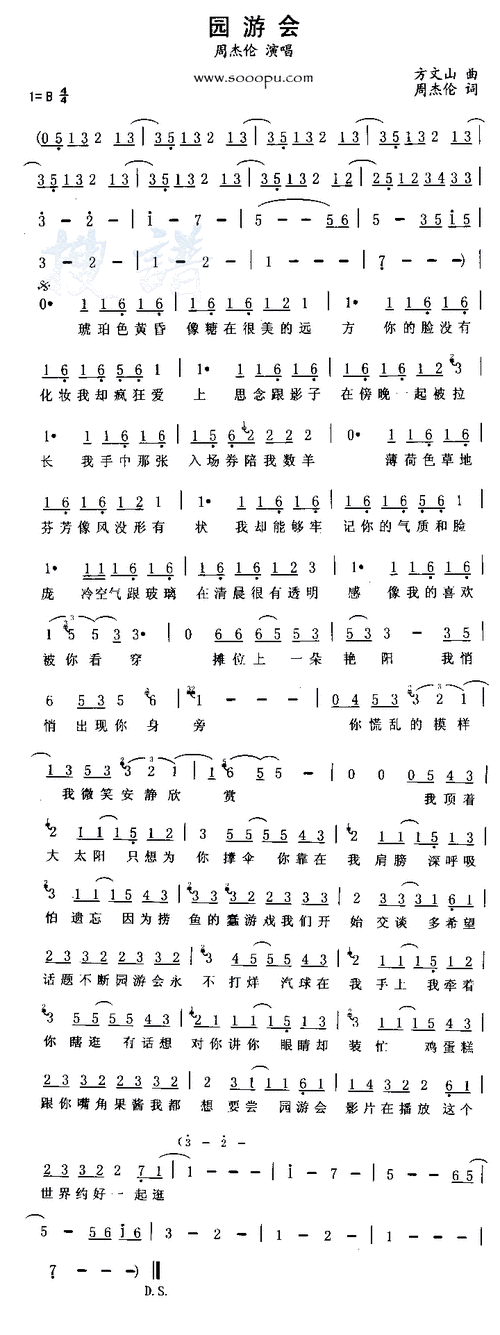 园游会
周杰伦 演唱
www.sooopu.com
方文山 曲
周杰伦 词
1=B 4/4
(0 5 1 3 2 1 3 | 3 5 1 3 2 1 3 | 3 5 1 3 2 1 3 | 3 5 1 3 2 1 3 |
3 5 1 3 2 1 3 | 3 5 1 3 2 1 3 | 3 5 1 3 2 1 2 | 2 5 1 2 3 4 3 3 |
3 - 2 - | 1 - 7 - | 5 - - 5 6 | 5 - 3 5 i 5 |
3 - 2 - | 1 - 2 - | 1 - - - | 7 - - -) |
搜谱
0· 1 1 6 1 6 | 1 1 6 1 6 1 2 1 | 1· 1 1 6 1 6 |
琥珀色黄昏 像糖在很美的远 方 你的脸没有
1 6 1 6 5 6 1 | 1· 1 1 6 1 6 | 1 6 1 6 1 2 3 |
化妆我却疯狂爱 上 思念跟影子 在傍晚一起被拉
1· 1 1 6 1 6 | 1 5 6 2 2 2 2 | 0· 1 1 6 1 6 |
长 我手中那张 入场券陪我数羊 薄荷色草地
1 6 1 6 1 2 1 | 1· 1 1 6 1 6 | 1 6 1 6 5 6 1 |
芬芳像风没形有 状 我却能够牢 记你的气质和脸
1· 1 1 1 6 1 6 | 1 6 1 6 1 2 3 | 1 1 1 6 1 6 |
庞 冷空气跟玻璃 在清晨很有透明 感 像我的喜欢
1 5 5 3 3· | 0 6 6 6 5 3 5 | 5 3 3 - 3 5 |
被你看穿 摊位上 一朵 艳阳 我悄
6 5 3 5 5 6 | 1 - - - | 0 4 5 3 3 2 1 |
悄 出现你身 旁 你慌乱的模样
1 3 5 3 3 2 1 | 1 6 5 5 - | 0 0 0 5 4 3 |
我微笑安静欣 赏 我顶着
2 1 1 1 5 1 2 | 3 5 5 5 5 4 3 | 2 1 1 1 5 1 3 |
大太阳 只想为 你撑伞 你靠在 我肩膀 深呼吸
3 1 1 1 5 4 3 | 3 3 3 3 2 3 2 | 3 3 3 1 6 1 |
怕遗忘 因为捞 鱼的蠢游戏我们开 始交谈 多希望
2 3 3 2 3 3 2 2 | 3 4 5 5 5 4 3 | 2 1 1 1 5 1 3 |
话题不断园游会永 不打烊 汽球在 我手上 我牵着
3 5 5 5 5 4 3 | 2 1 1 1 5 1 2 | 3 5 5 5 5 4 3 |
你瞎逛 有话想 对你讲你 眼睛却 装忙 鸡蛋糕
2 3 3 2 3 2 3 2 | 3 1 1 1 6 1 | 1 4 3 2 2 6 1 |
跟你嘴角果酱我都 想要尝 园游会 影片在播放 这个
(3 - 2 -
2 3 3 2 3 2 7 1 | 1 - - - | 1 - 7 - | 5 - - 6 5 |
世界约好一起逛
5 - 5 6 i 6 | 3 - 2 - | 1 - 2 - | 1 - - - |
7 - - -) ‖
D.S.